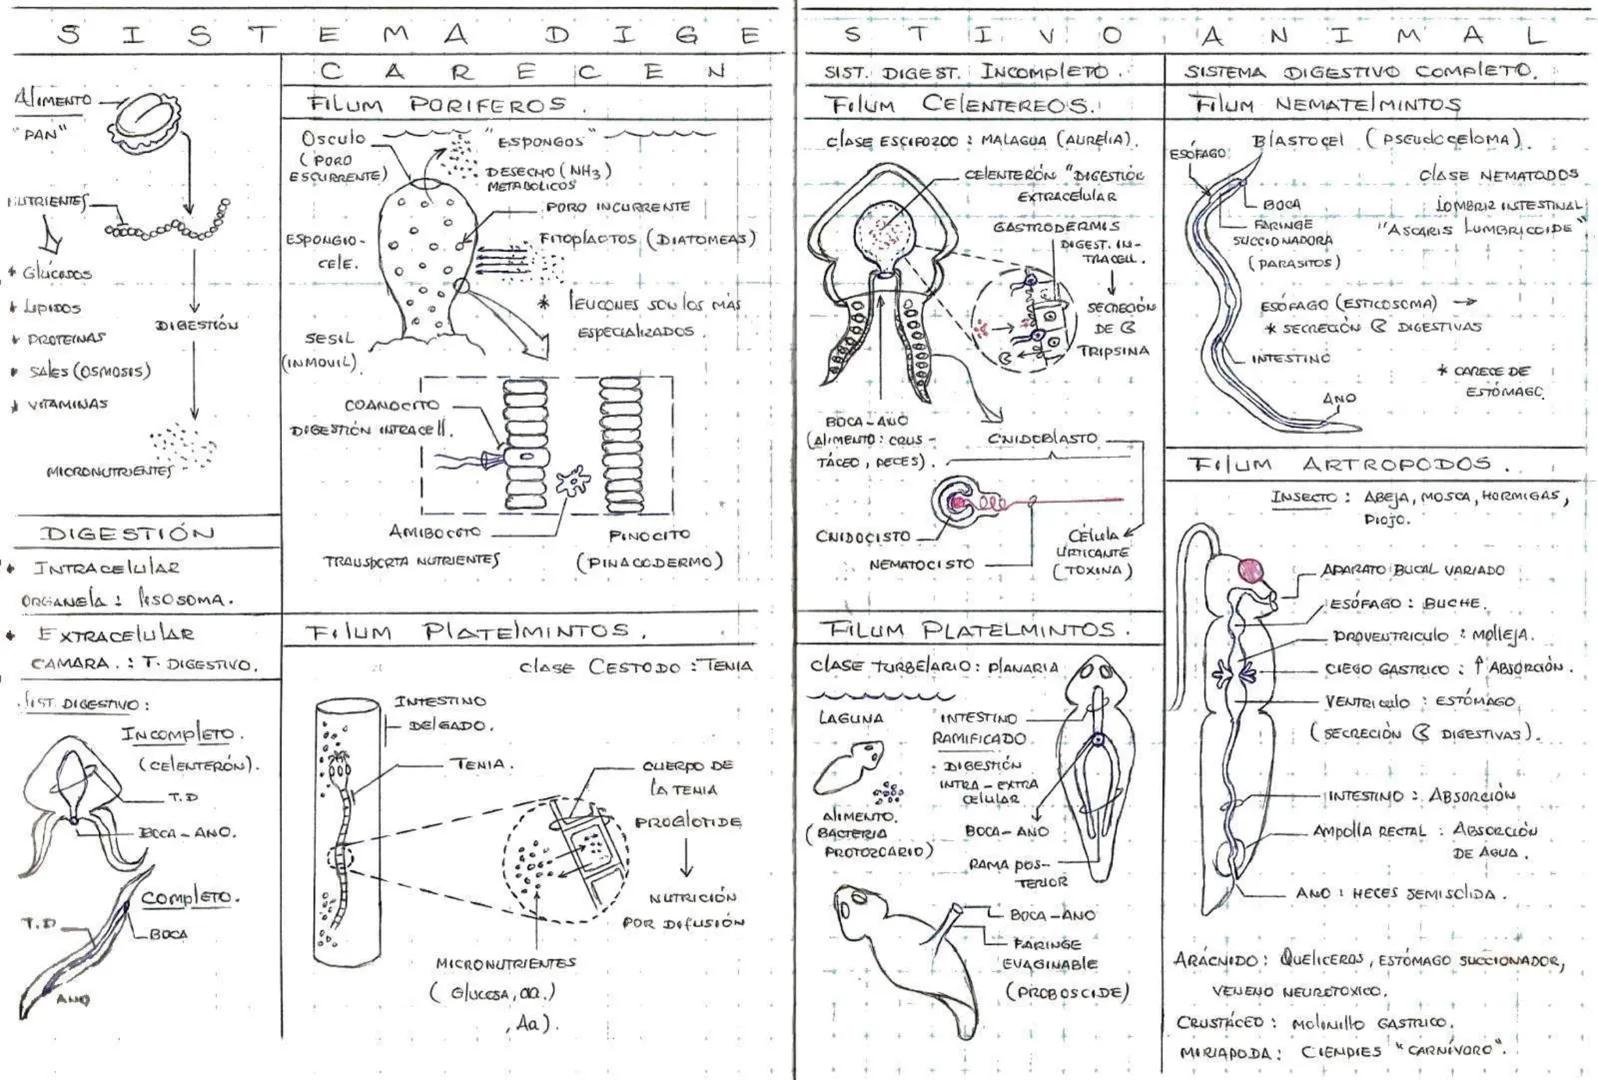 SISTEMA DIGESTIVO ANIMAL
ALIMENTO
"PAN"
NUTRIENTES
* GLÚCIDOS
* LIPIDOS
* PROTEINAS
* SALES (OSMOSIS)
* VITAMINAS
DIGESTIÓN
MICRONUTRIENTES
DIGESTIÓN
* INTRACELULAR
ORGANELA: LISOSOMA.
* EXTRACELULAR
CAMARA.: T. DIGESTIVO.
SIST. DIGESTIVO:
INCOMPLETO.
(CELENTERÓN).
T.D
BOCA-ANO.
COMPLETO.
T.D
BOCA
ANO
CARECEN
FILUM PORIFEROS.
OSCULO
(PORO
ESCURRENTE)
"ESPONGOS"
DESECHO (NH3)
METABOLICOS
PORO INCURRENTE
ESPONGIO-
CELE.
FITOPLACTOS (DIATOMEAS)
* LEUCONES SON LOS MÁS
ESPECIALIZADOS.
SESIL
(INMOVIL).
COANOCITO
DIGESTIÓN INTRACELL.
AMIBOCITO
TRANSPORTA NUTRIENTES
PINOCITO
(PINACODERMO)
FILUM PLATELMINTOS.
CLASE CESTODO: TENIA
INTESTINO
DELGADO.
TENIA.
CUERPO DE
LA TENIA
PROGLOTIDE
NUTRICIÓN
POR DIFUSIÓN
MICRONUTRIENTES
(GLUCOSA, aa.)
, Aa).
SIST. DIGEST. INCOMPLETO.
FILUM CELENTEREOS.
CLASE ESCIFOZOO: MALAGUA (AURELIA).
CELENTERÓN "DIGESTIÓN
EXTRACELULAR
GASTRODERMIS
DIGEST. IN-
TRACELL.
SECRECIÓN
DE
TRIPSINA
BOCA-ANO
(ALIMENTO: CRUS-
TÁCEO, PECES).
CNIDOBLASTO
CNIDOCISTO
NEMATOCISTO
CÉLULA
URTICANTE
(TOXINA)
FILUM PLATELMINTOS.
CLASE TURBELARIO: PLANARIA
LAGUNA
ALIMENTO.
(BACTERIA
PROTOZOARIO)
INTESTINO
RAMIFICADO
. DIGESTIÓN
INTRA-EXTRA
CELULAR
BOCA-ANO
RAMA POS-
TERIOR
BOCA-ANO
FARINGE
EVAGINABLE
(PROBOSCIDE)
SISTEMA DIGESTIVO COMPLETO.
FILUM NEMATELMINTOS
BLASTOCEL (PSEUDOCELOMA).
ESÓFAGO
CLASE NEMATODOS
LOMBRIZ INTESTINAL
"ASCARIS LUMBRICOIDE"
BOCA
FARINGE
SUCCIONADORA
(PARASITOS)
ESÓFAGO (ESTICOSOMA) →
* SECRECIÓN DIGESTIVAS
INTESTINO
* CARECE DE
ESTÓMAGO
ANO
FILUM ARTROPODOS.
INSECTO: ABEJA, MOSCA, HORMIGAS,
PIOJO.
APARATO BUCAL VARIADO
ESÓFAGO: BUCHE.
PROVENTRICULO: MOLLEJA.
CIEGO GASTRICO: ↑ ABSORCIÓN.
VENTRICULO: ESTÓMAGO
(SECRECIÓN DIGESTIVAS).
INTESTINO: ABSORCIÓN
AMPOLLA RECTAL: ABSORCIÓN
DE AGUA.
ANO: HECES SEMISOLIDA.
ARÁCNIDO: QUELICEROS, ESTÓMAGO SUCCIONADOR,
VENENO NEUROTOXICO.
CRUSTÁCEO: MOLINILLO GASTRICO.
MIRIAPODA: CIENPIES "CARNÍVORO".